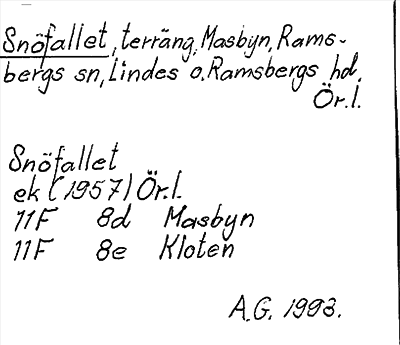 Snöfallet, terräng, Masbyn, Rams-
bergs sn, Lindes o. Ramsbergs hd,
Ör.l.
Snöfallet
ek (1957) Ör.l.
11F 8d Masbyn
11F 8e Kloten
A.G. 1993.